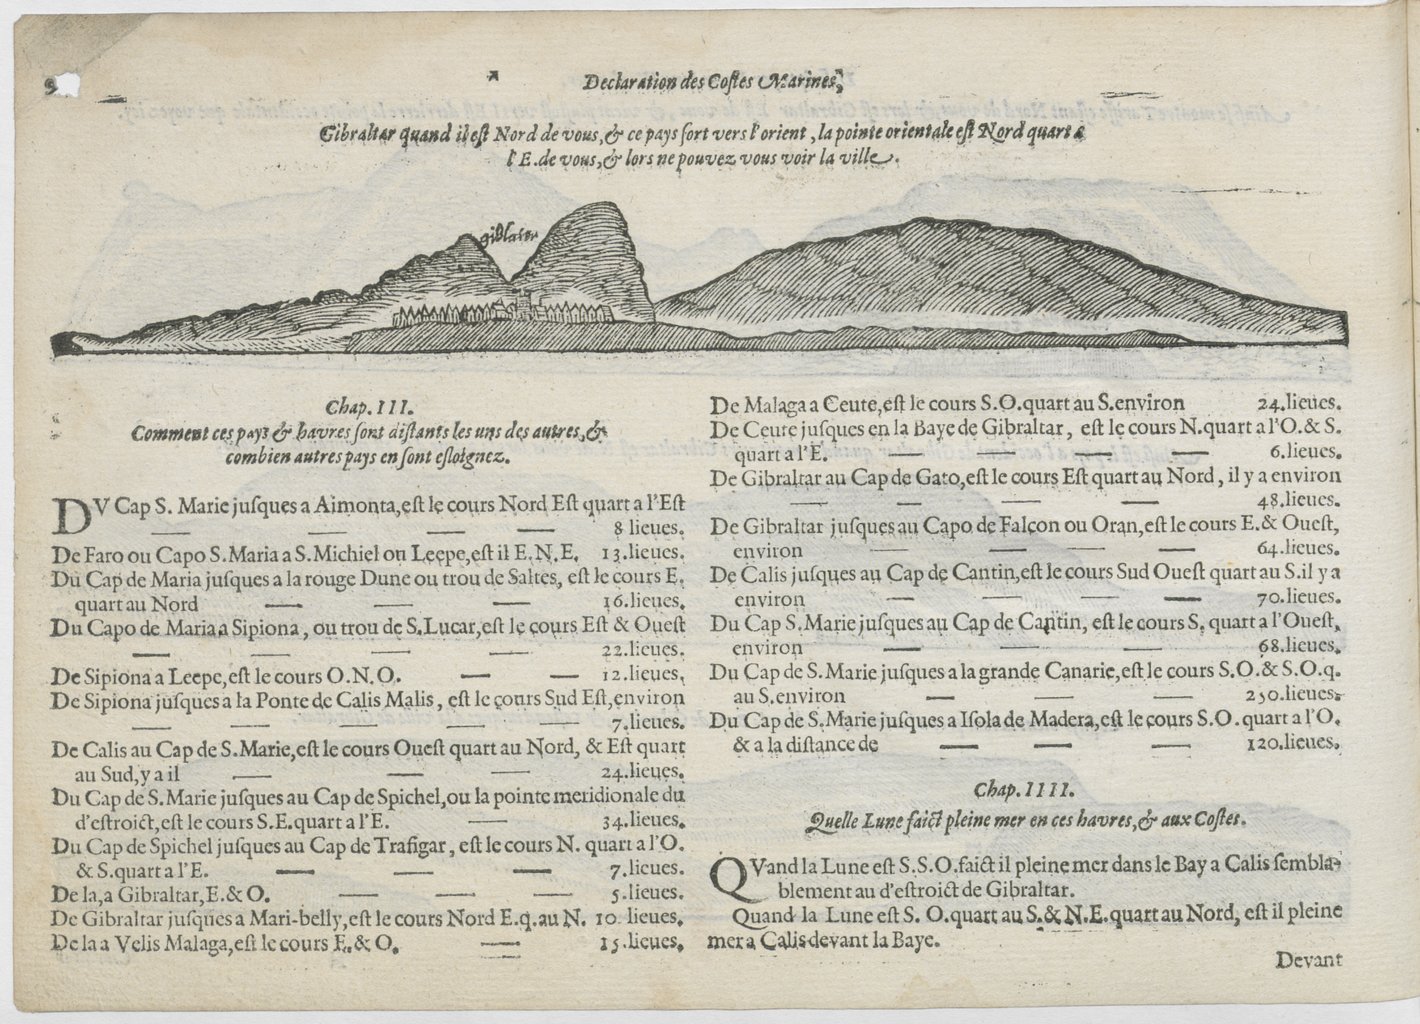 Declaration des Costes Marines,
Gibraltar quand il est Nord de vous, & ce pays sort vers l'orient, la pointe orientale est Nord quart a
l'E. de vous, & lors ne pouvez vous voir la ville.
Chap. III.
Comment ces pays & havres sont distants les uns des autres, &
combien autres pays en sont esloignez.
DV Cap S. Marie jusques a Aimonta, est le cours Nord Est quart a l'Est
8 lieues.
De Faro ou Capo S. Maria a S. Michiel ou Leepe, est il E.N.E. 13. lieues.
Du Cap de Maria jusques a la rouge Dune ou trou de Saltes, est le cours E.
quart au Nord 16. lieues.
Du Capo de Maria a Sipiona, ou trou de S. Lucar, est le cours Est & Ouest
22. lieues.
De Sipiona a Leepe, est le cours O.N.O. 12. lieues.
De Sipiona jusques a la Ponte de Calis Malis, est le cours Sud Est, environ
7. lieues.
De Calis au Cap de S. Marie, est le cours Ouest quart au Nord, & Est quart
au Sud, y a il 24. lieues.
Du Cap de S. Marie jusques au Cap de Spichel, ou la pointe meridionale du
d'estroict, est le cours S.E. quart a l'E. 34. lieues.
Du Cap de Spichel jusques au Cap de Trafigar, est le cours N. quart a l'O.
& S. quart a l'E. 7. lieues.
De la, a Gibraltar, E. & O. 5. lieues.
De Gibraltar jusques a Mari-belly, est le cours Nord E.q. au N. 10 lieues.
De la a Velis Malaga, est le cours E. & O. 15. lieues.
De Malaga a Ceute, est le cours S.O. quart au S. environ 24. lieues.
De Ceute jusques en la Baye de Gibraltar, est le cours N. quart a l'O. & S.
quart a l'E. 6. lieues.
De Gibraltar au Cap de Gato, est le cours Est quart au Nord, il y a environ
48. lieues.
De Gibraltar jusques au Capo de Falcon ou Oran, est le cours E. & Ouest,
environ 64. lieues.
De Calis jusques au Cap de Cantin, est le cours Sud Ouest quart au S. il y a
environ 70. lieues.
Du Cap S. Marie jusques au Cap de Cantin, est le cours S. quart a l'Ouest,
environ 68. lieues.
Du Cap de S. Marie jusques a la grande Canarie, est le cours S.O. & S.O.q.
au S. environ 250. lieues.
Du Cap de S. Marie jusques a Isola de Madera, est le cours S.O. quart a l'O.
& a la distance de 120. lieues.
Chap. IIII.
Quelle Lune faict pleine mer en ces havres, & aux Costes.
QVand la Lune est S.S.O. faict il pleine mer dans le Bay a Calis sembla-
blement au d'estroict de Gibraltar.
Quand la Lune est S. O. quart au S. & N.E. quart au Nord, est il pleine
mer a Calis devant la Baye.
Devant